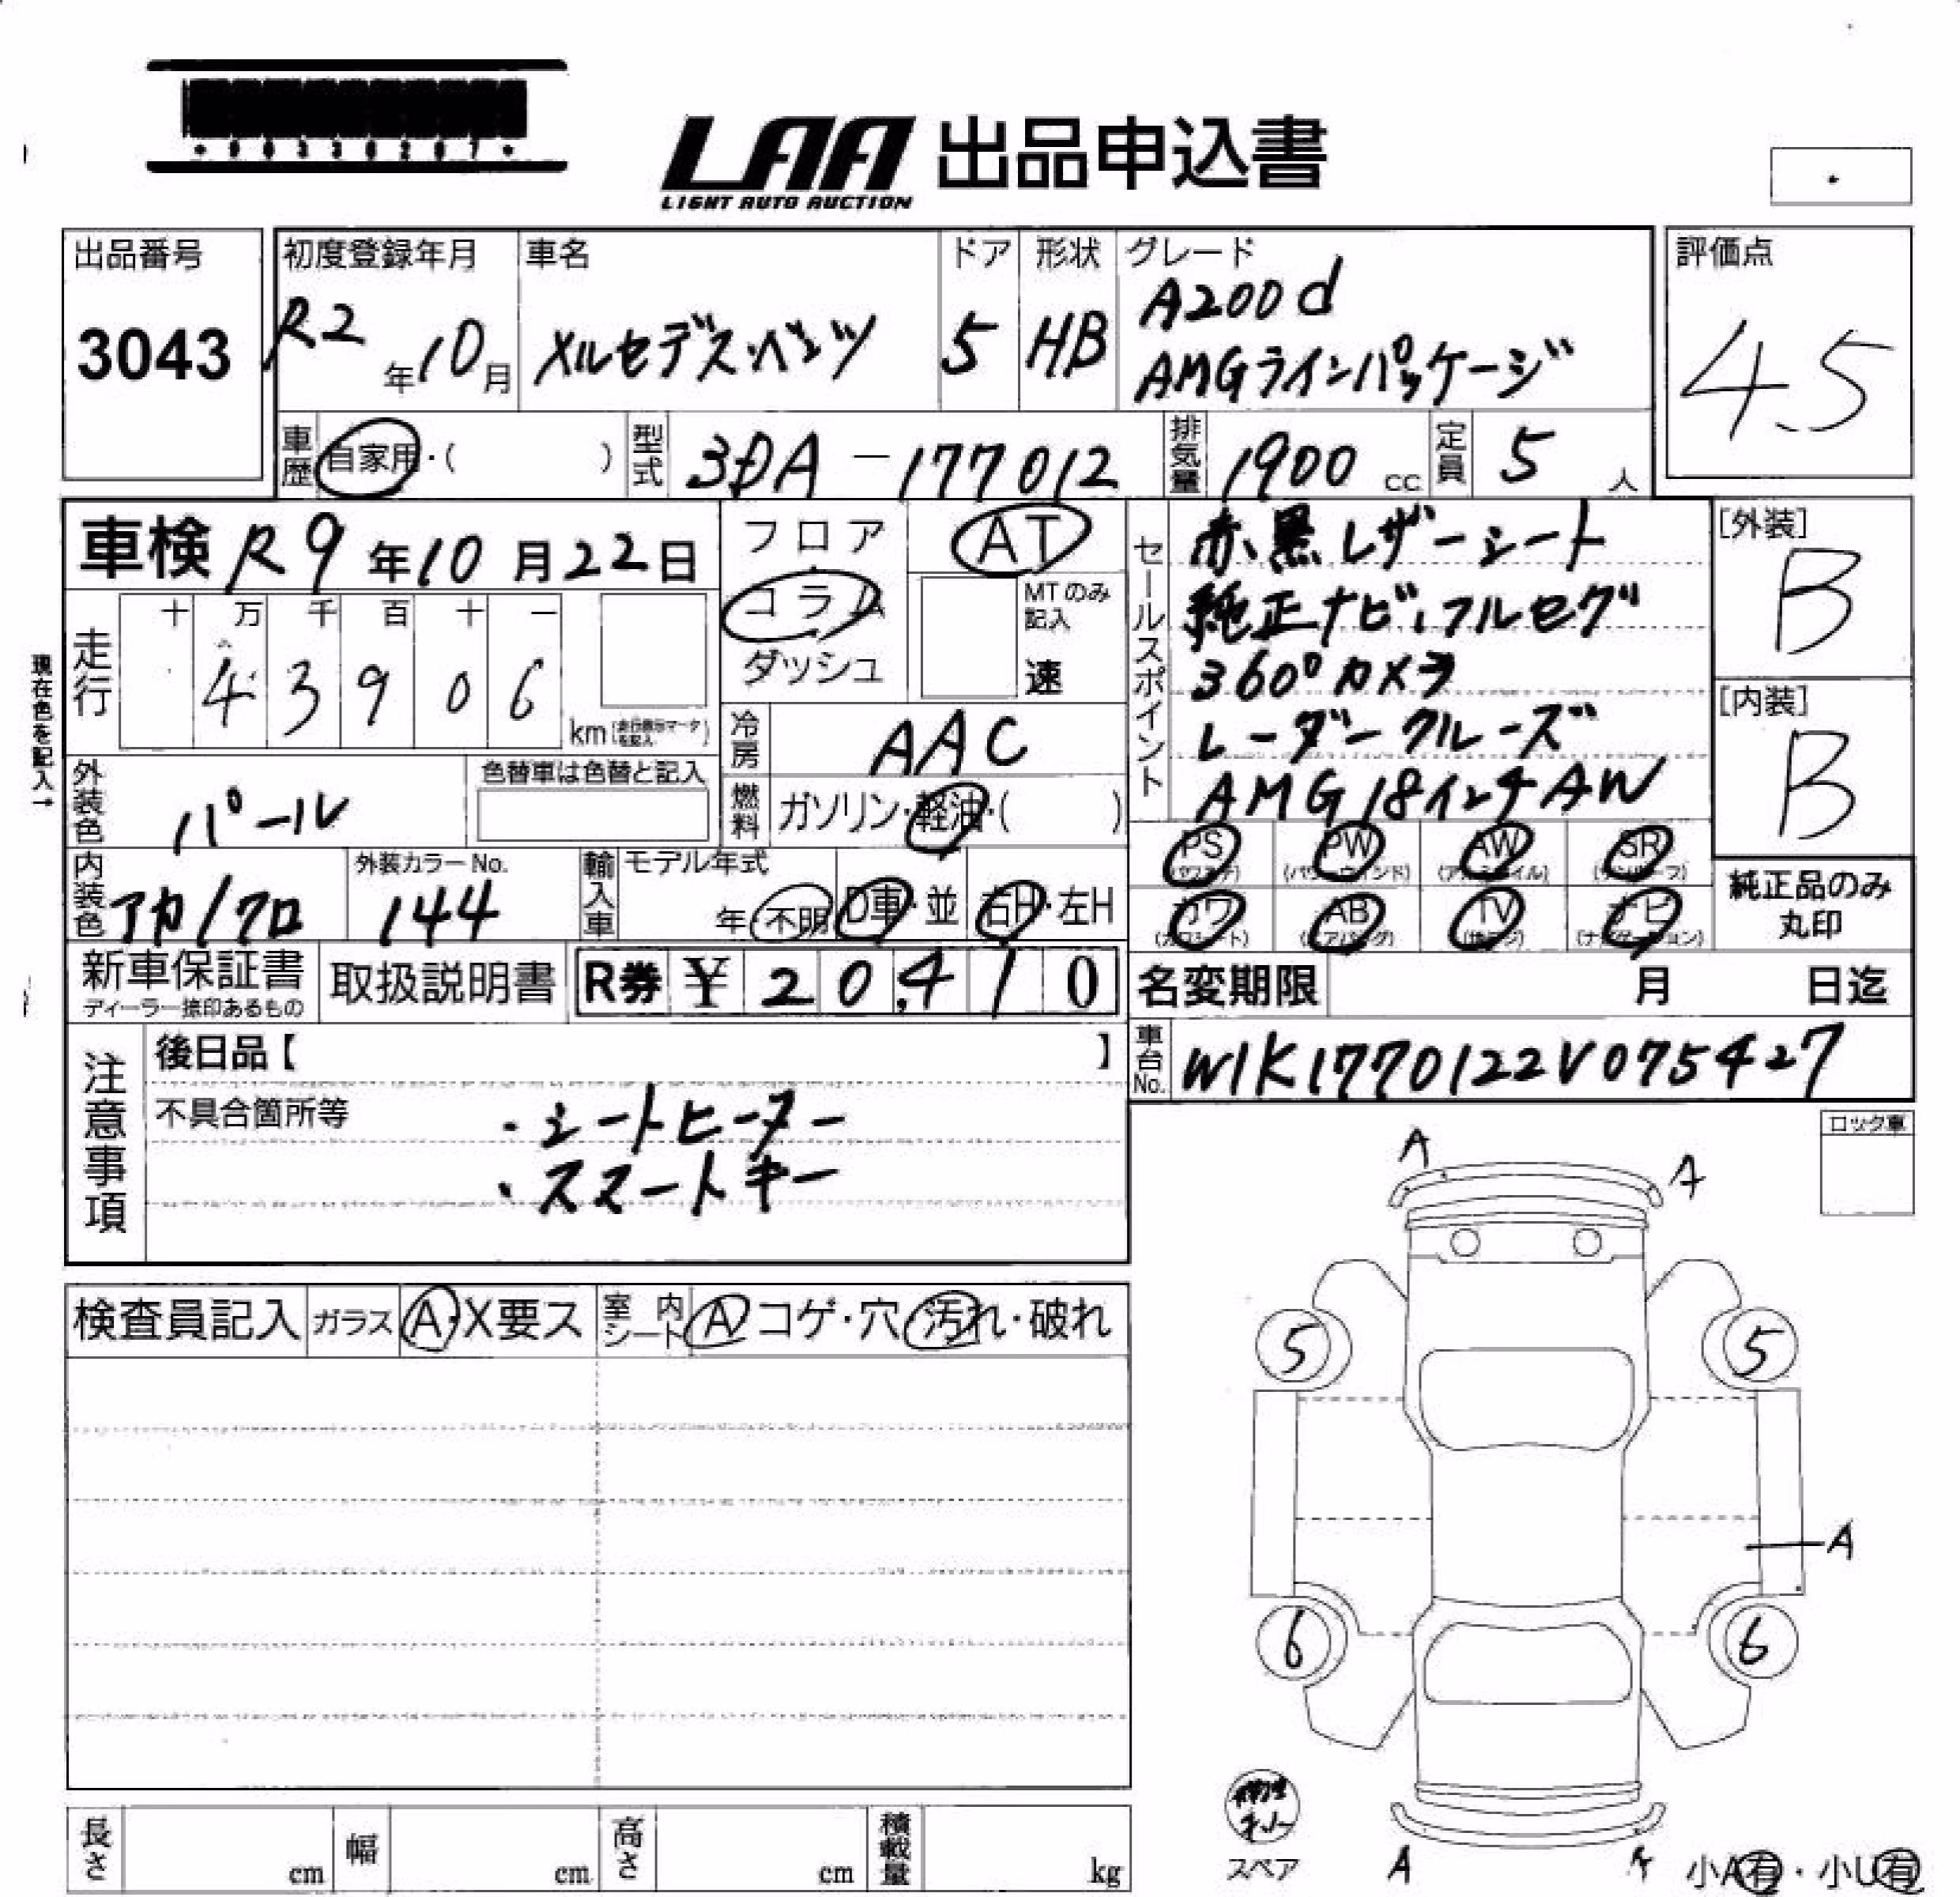 LAA 出品申込書
LIGHT AUTO AUCTION
出品番号
3043
初度登録年月
R2年10月
車名
メルセデス・ベンツ
ドア
5
形状
HB
グレード
A200d
AMGラインパッケージ
評価点
4.5
車歴 自家用・( )
型式 3DA-177012
排気量 1900 cc
定員 5 人
車検 R9年10月22日
フロア
コラム
ダッシュ
AT
MTのみ
記入
速
セールスポイント
赤、黒レザーシート
純正ナビ、フルセグ
360°カメラ
レーダークルーズ
AMG18インチAW
[外装]
B
[内装]
B
現在色を記入→
走行
十 万 千 百 十 一
4 3 9 0 6
km
冷房 AAC
燃料 ガソリン・軽油・( )
外装色 パール
色替車は色替と記入
内装色 アカ/クロ
外装カラーNo.
144
輸入車
モデル年式
年 不明
D車・並
右H・左H
PS PW AW SR
(パワステ) (パワーウインド) (アルミホイル) (サンルーフ)
カワ AB TV ナビ
(カワシート) (エアバッグ) (地デジ) (ナビゲーション)
純正品のみ
丸印
新車保証書
ディーラー捺印あるもの
取扱説明書
R券 ¥ 20,410
名変期限 月 日迄
車台No. W1K1770122V075427
注意事項
後日品【 】
不具合箇所等
・シートヒーター
・スマートキー
ロック車
検査員記入
ガラス A・X要ス
室内シート A コゲ・穴・汚れ・破れ
A A
5 5
A
6 6
スペア
A
小A有・小U有
長さ cm
幅 cm
高さ cm
積載量 kg